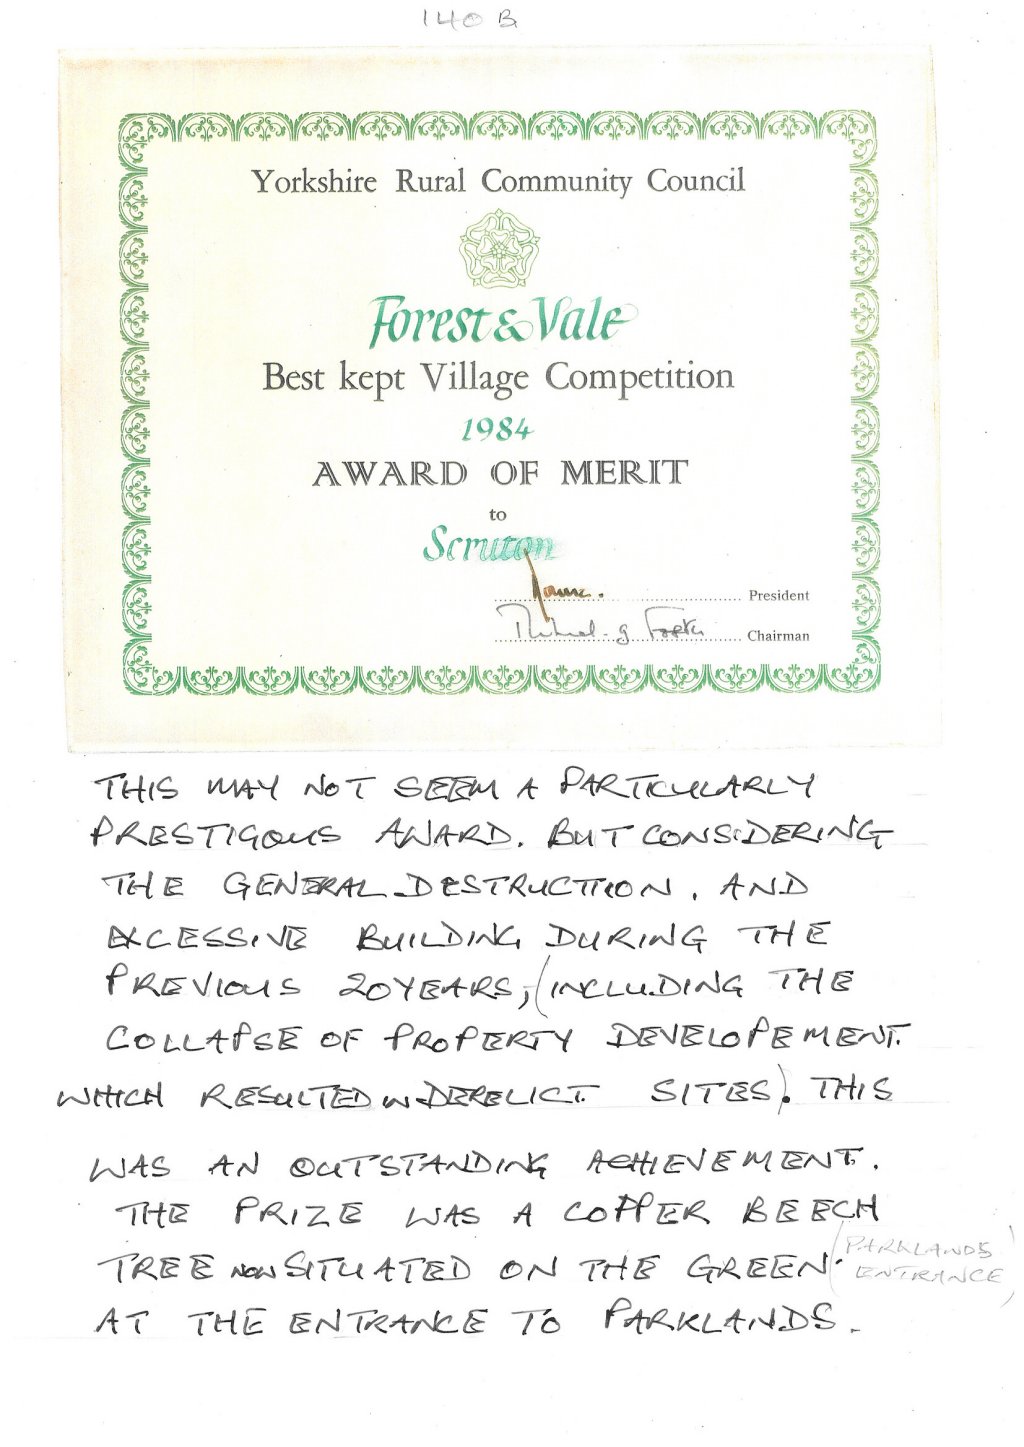 140 B
Yorkshire Rural Community Council
Forest & Vale
Best kept Village Competition
1984
AWARD OF MERIT
to
Scruton
President
Chairman
THIS MAY NOT SEEM A PARTICULARLY
PRESTIGOUS AWARD. BUT CONSIDERING
THE GENERAL DESTRUCTION, AND
EXCESSIVE BUILDING DURING THE
PREVIOUS 20 YEARS, (INCLUDING THE
COLLAPSE OF PROPERTY DEVELOPEMENT.
WHICH RESULTED IN DERELICT SITES). THIS
WAS AN OUTSTANDING ACHIEVEMENT.
THE PRIZE WAS A COPPER BEECH
TREE NOW SITUATED ON THE GREEN. (PARKLANDS
ENTRANCE)
AT THE ENTRANCE TO PARKLANDS.